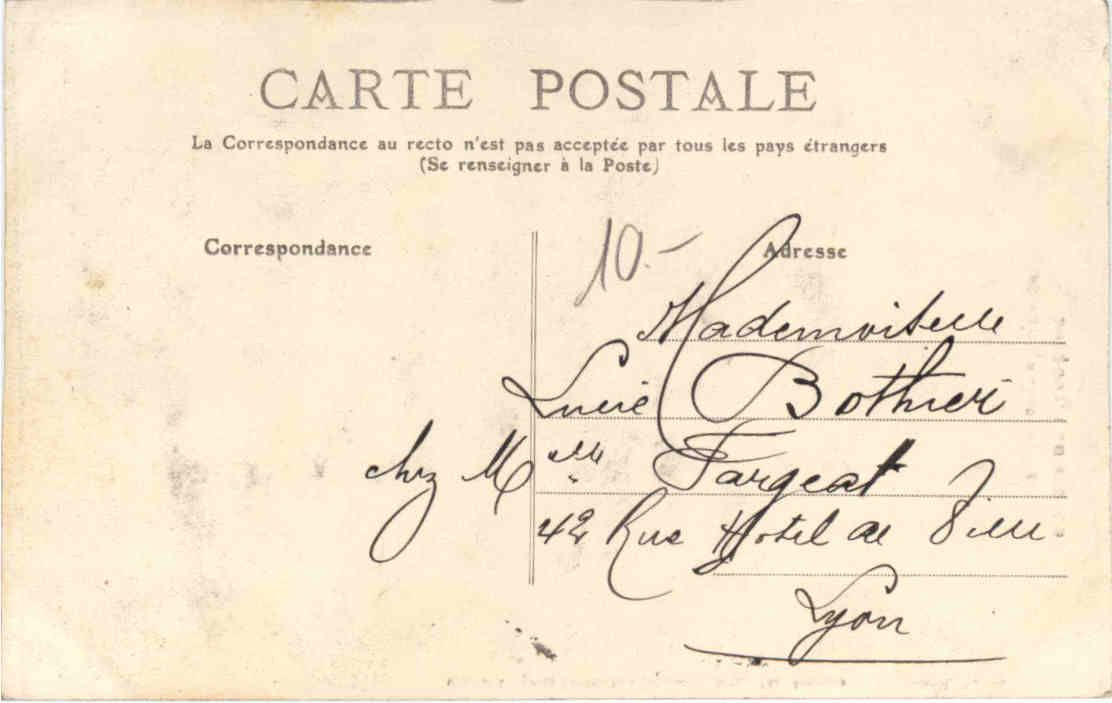 CARTE POSTALE
La Correspondance au recto n'est pas acceptée par tous les pays étrangers
(Se renseigner à la Poste)
Correspondance
Adresse
10.-
Mademoiselle
Lucie Bothier
chez Melle Fargeat
42 Rue Hotel de Ville
Lyon